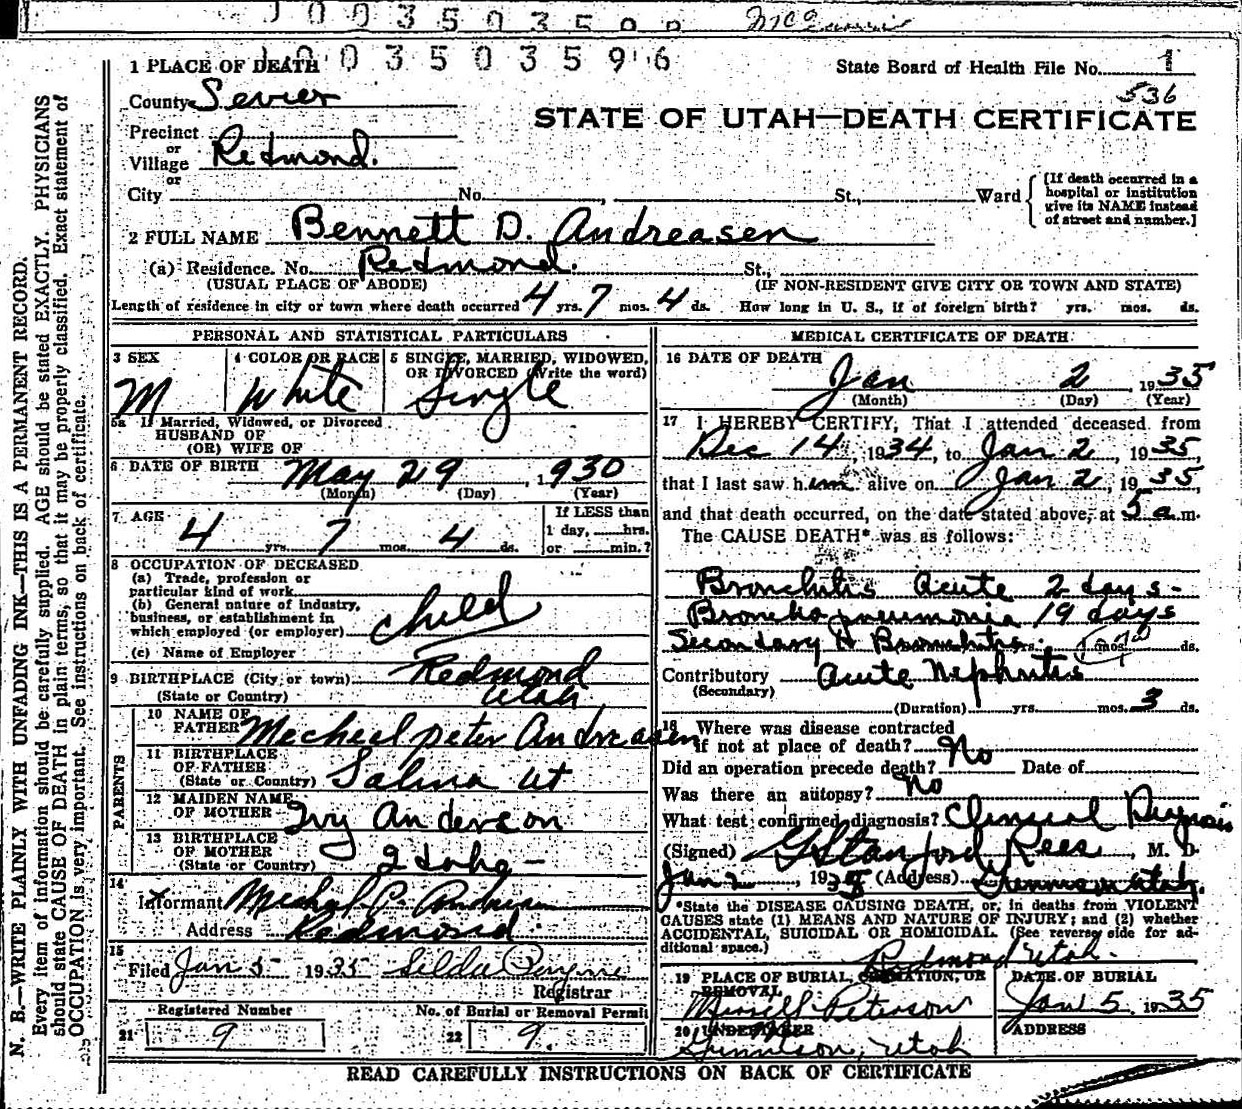 1 0 0 3 5 0 3 5 9
1 0 0 3 5 0 3 5 9 6
1 PLACE OF DEATH
State Board of Health File No. 1
536
County Sevier
STATE OF UTAH—DEATH CERTIFICATE
Precinct
or
Village Redmond.
or
City No. St., Ward
[If death occurred in a
hospital or institution
give its NAME instead
of street and number.]
2 FULL NAME Bennett D. Andreasen
(a) Residence. No. Redmond. St.,
(USUAL PLACE OF ABODE) (IF NON-RESIDENT GIVE CITY OR TOWN AND STATE)
Length of residence in city or town where death occurred 4 yrs. 7 mos. 4 ds. How long in U. S., if of foreign birth? yrs. mos. ds.
PERSONAL AND STATISTICAL PARTICULARS
3 SEX
M
4 COLOR OR RACE
White
5 SINGLE, MARRIED, WIDOWED,
OR DIVORCED (Write the word)
Single
5a If Married, Widowed, or Divorced
HUSBAND OF
(OR) WIFE OF
6 DATE OF BIRTH May 29, 1930
(Month) (Day) (Year)
7 AGE
4 yrs. 7 mos. 4 ds.
If LESS than
1 day, hrs.
or min.?
8 OCCUPATION OF DECEASED
(a) Trade, profession or
particular kind of work
(b) General nature of industry,
business, or establishment in
which employed (or employer) Child
(c) Name of Employer
9 BIRTHPLACE (City or town) Redmond
(State or Country) Utah
PARENTS
10 NAME OF
FATHER Mecheal peter Andreasen
11 BIRTHPLACE
OF FATHER
(State or Country) Salina ut
12 MAIDEN NAME
OF MOTHER Ivy Anderson
13 BIRTHPLACE
OF MOTHER
(State or Country) Idaho —
14
Informant Micheal P. Andreasen
Address Redmond.
15
Filed Jan 5 1935 Silda Payne
Registrar
Registered Number
21 9
No. of Burial or Removal Permit
22 9.
MEDICAL CERTIFICATE OF DEATH
16 DATE OF DEATH
Jan 2, 1935
(Month) (Day) (Year)
17 I HEREBY CERTIFY, That I attended deceased from
Dec 14, 1934, to Jan 2, 1935,
that I last saw him alive on Jan 2, 1935,
and that death occurred, on the date stated above, at 5 a.m.
The CAUSE DEATH* was as follows:
Bronchitis Acute 2 days -
Broncho pneumonia 19 days
Secondary to Bronchitis. yrs. mos. ds.
Contributory Acute Nephritis
(Secondary)
(Duration) yrs. mos. 3 ds.
18 Where was disease contracted
if not at place of death? No
Did an operation precede death? No Date of
Was there an autopsy? No
What test confirmed diagnosis? Clinical
(Signed) G Stanford Rees, M. D.
Jan 2, 1935 (Address) Gunnison Utah.
*State the DISEASE CAUSING DEATH, or, in deaths from VIOLENT
CAUSES state (1) MEANS AND NATURE OF INJURY; and (2) whether
ACCIDENTAL, SUICIDAL OR HOMICIDAL. (See reverse side for ad-
ditional space.)
Redmond Utah.
19 PLACE OF BURIAL, CREMATION, OR
REMOVAL
DATE OF BURIAL
Jan 5, 1935
Peterson
20 UNDERTAKER
ADDRESS
Gunnison, Utah
READ CAREFULLY INSTRUCTIONS ON BACK OF CERTIFICATE
N. B.—WRITE PLAINLY WITH UNFADING INK—THIS IS A PERMANENT RECORD.
Every item of information should be carefully supplied. AGE should be stated EXACTLY. PHYSICIANS
should state CAUSE OF DEATH in plain terms, so that it may be properly classified. Exact statement of
OCCUPATION is very important. See instructions on back of certificate.